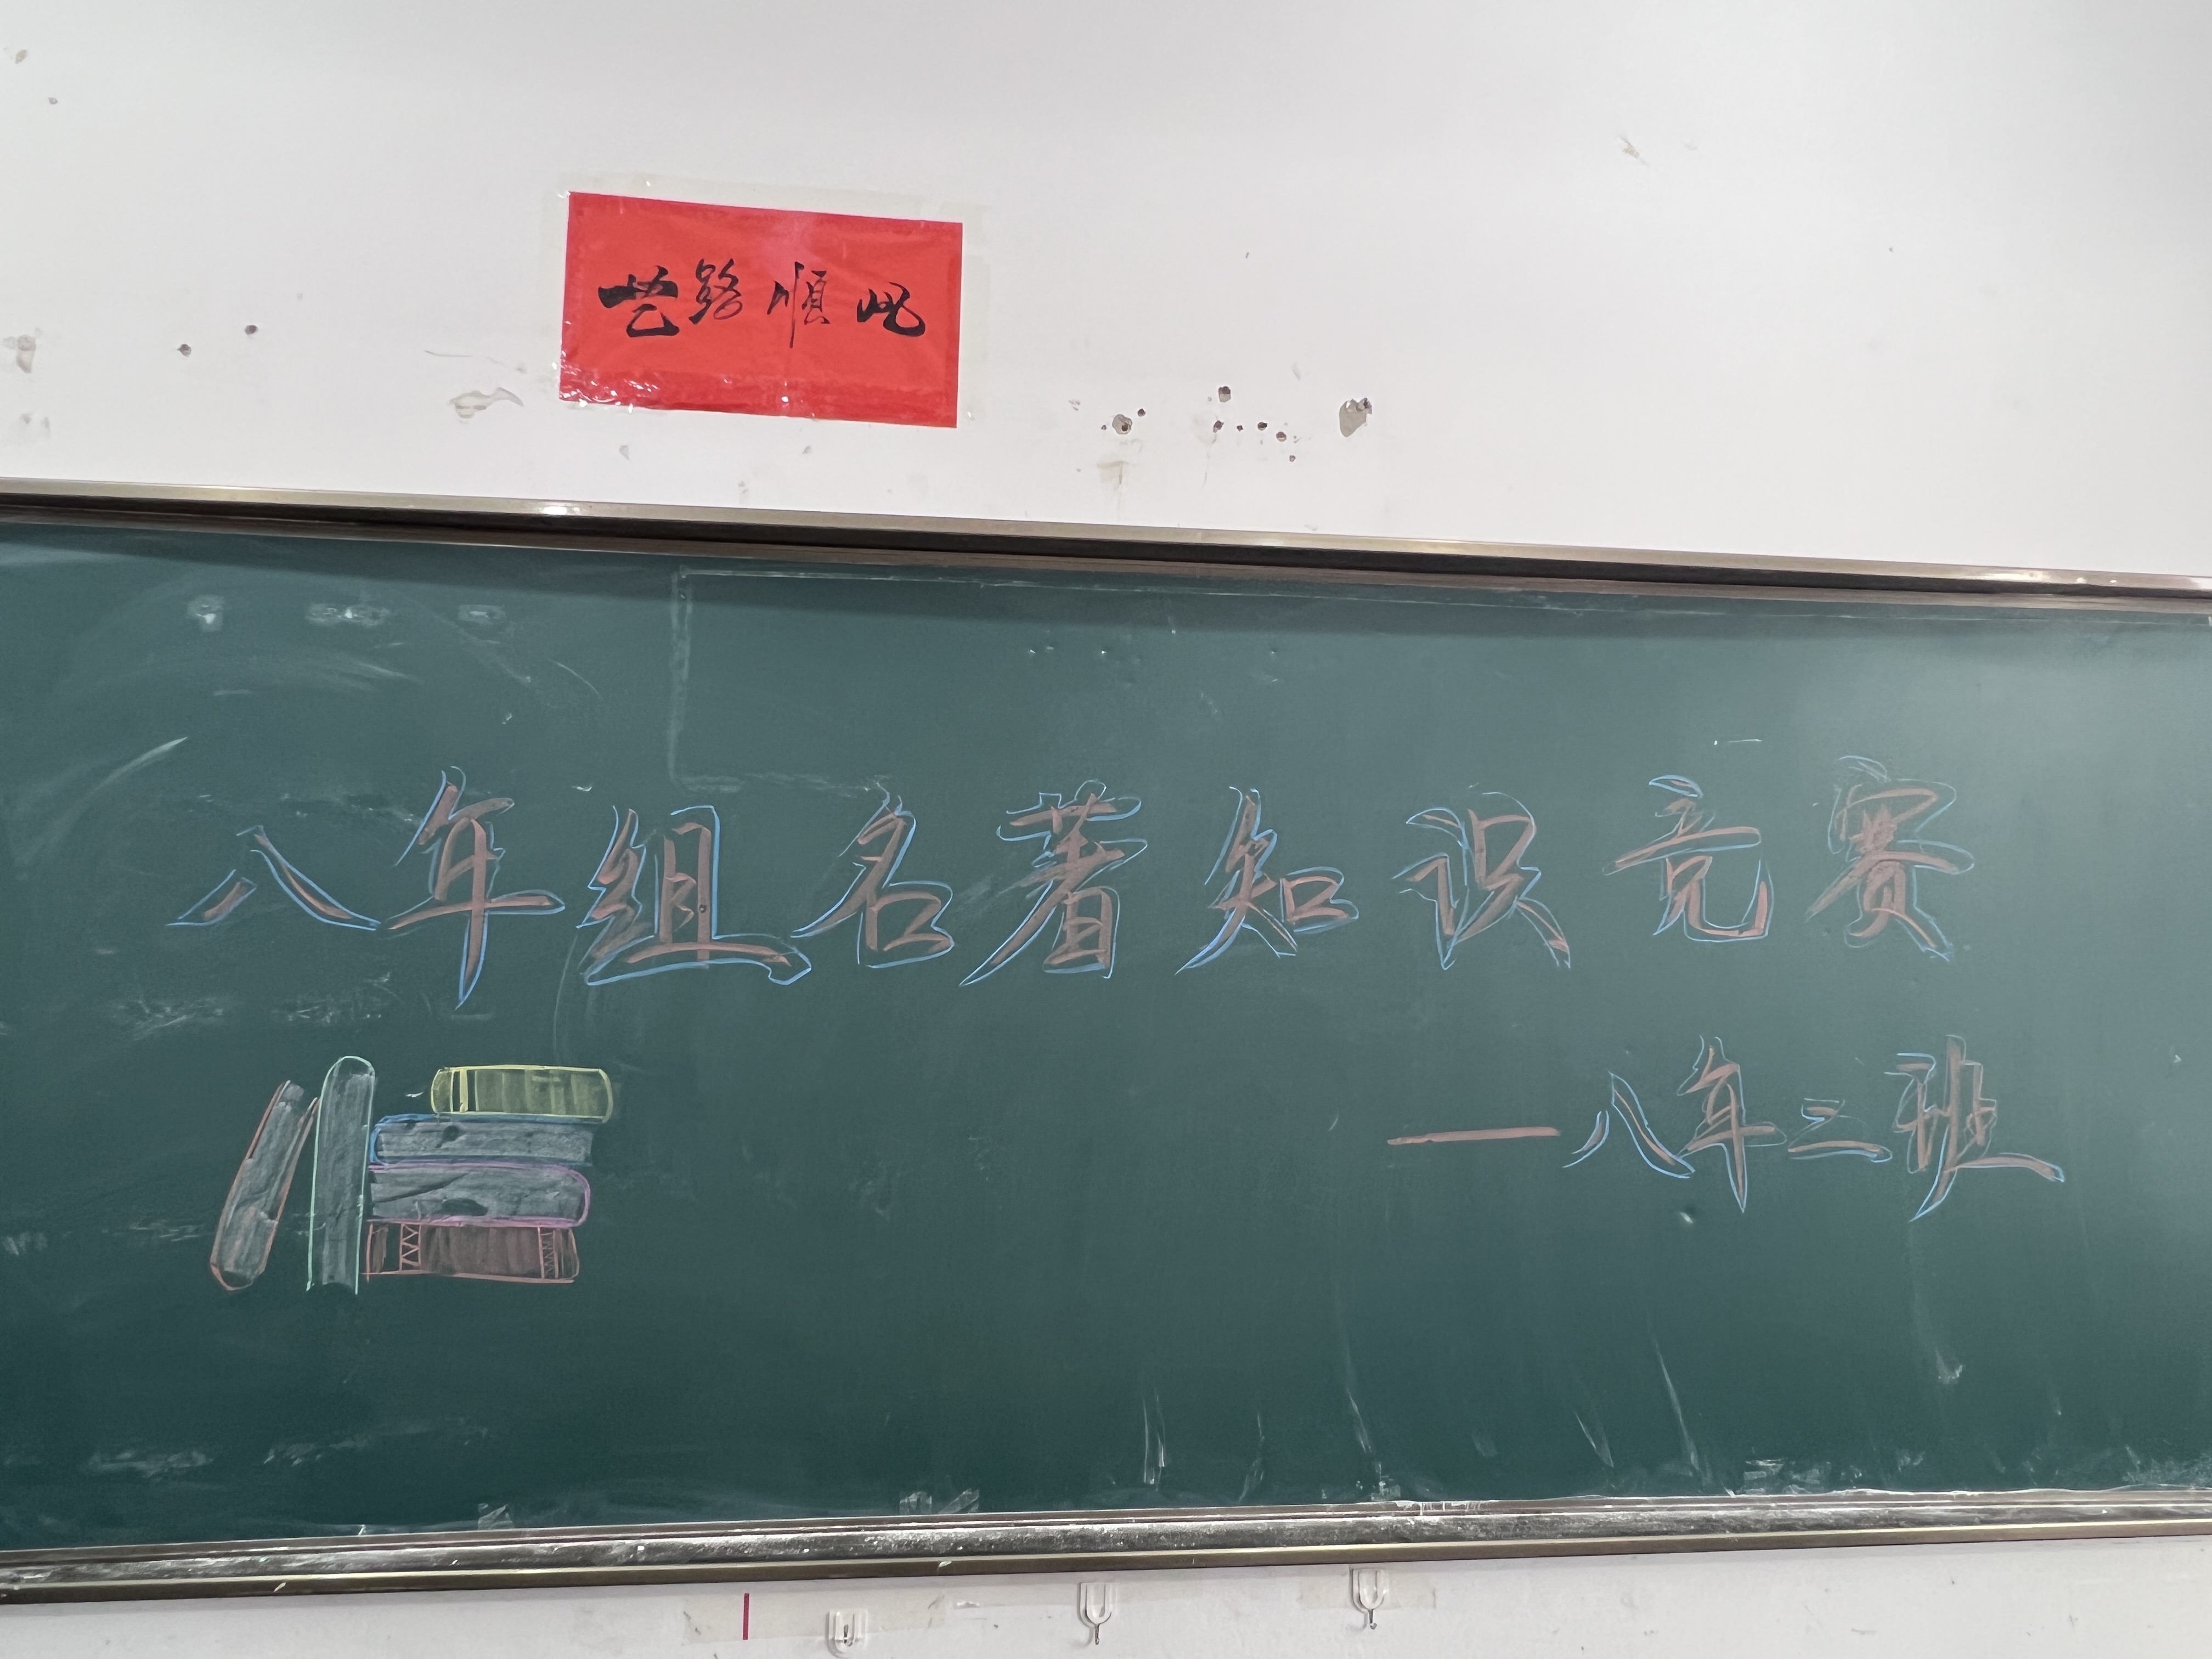 艺路顺风
八年组名著知识竞赛
—八年二班